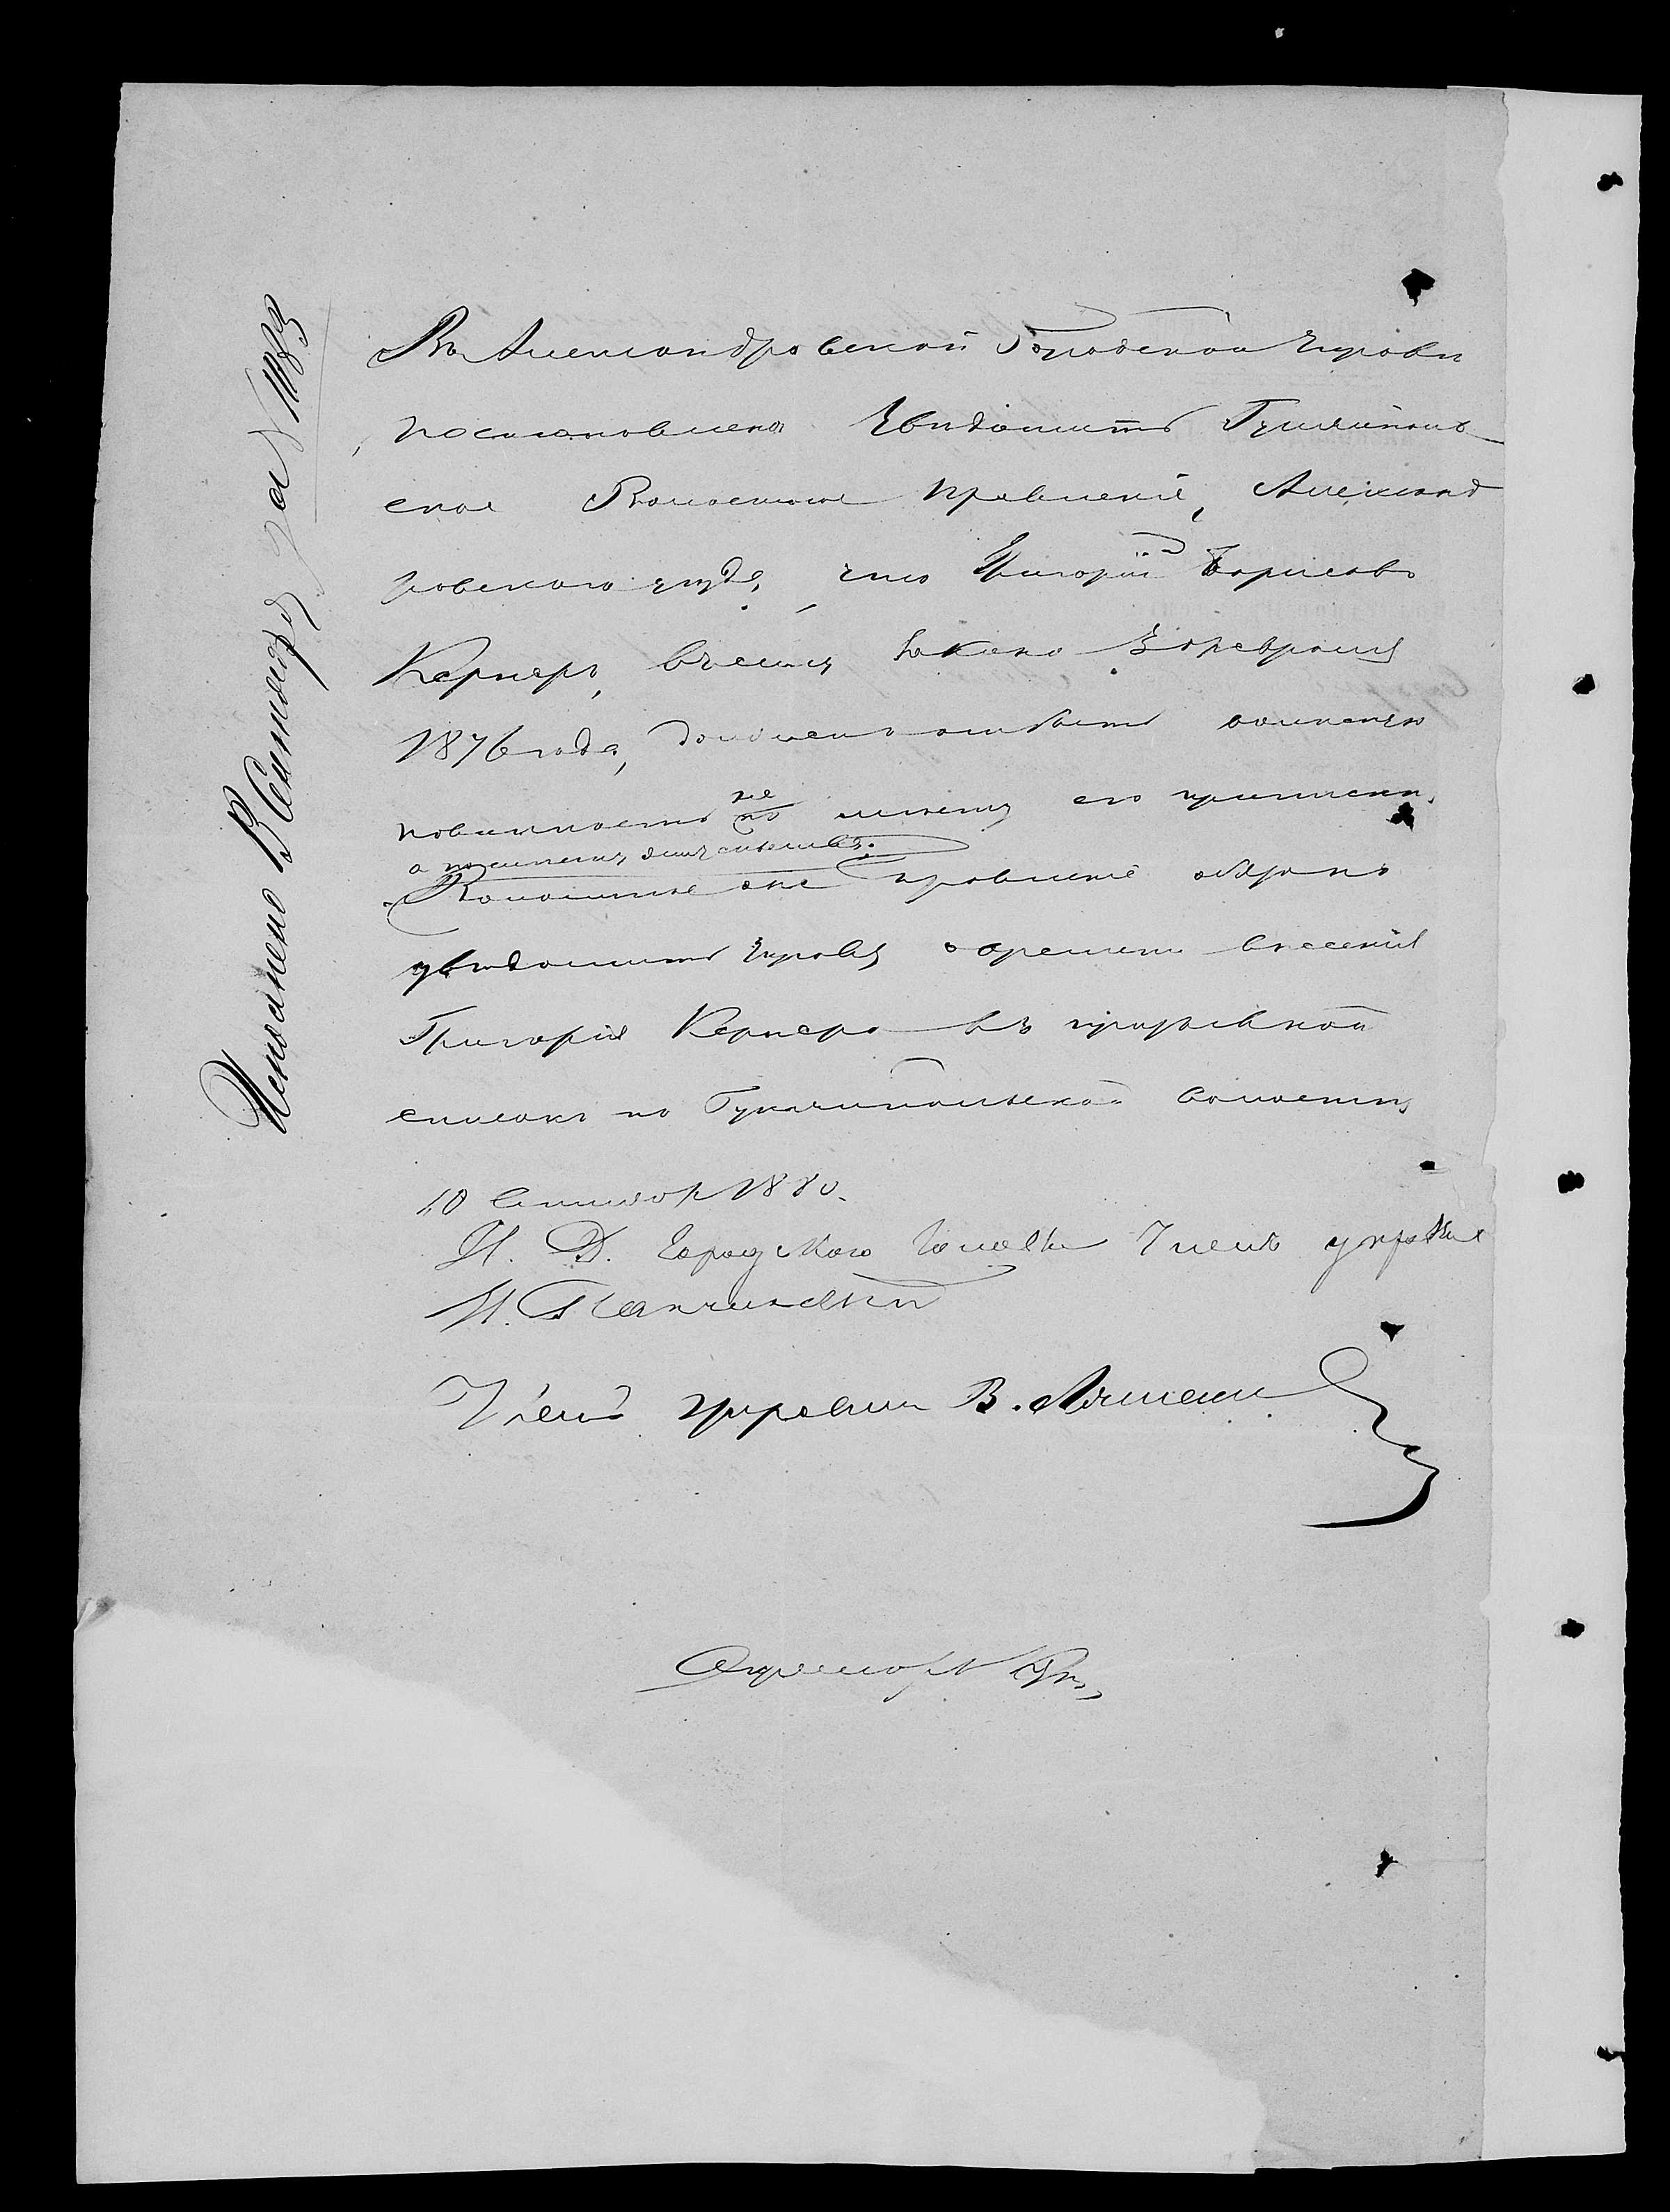 Исполнено 13 Сентября за № 1183
Въ Александровской Городской Управѣ
постановлено Увѣдомить Гуляйполь
ское Волостное Правленіе, Александ
ровскаго уѣзда, что Григорій Борисовъ
Кернеръ, въ силу Закона 3 Февраля
1876 года, долженъ отбыть воинскую
повинность не по мѣсту его приписки,
а по мѣсту жительства.
Волостное же правленіе обязано
увѣдомить Управу о времени внесенія
Григорія Кернера въ призывной
списокъ по Гуляйпольской волости
10 Сентября 1880.
И. Д. Городского Головы Членъ управы
Членъ управы В.